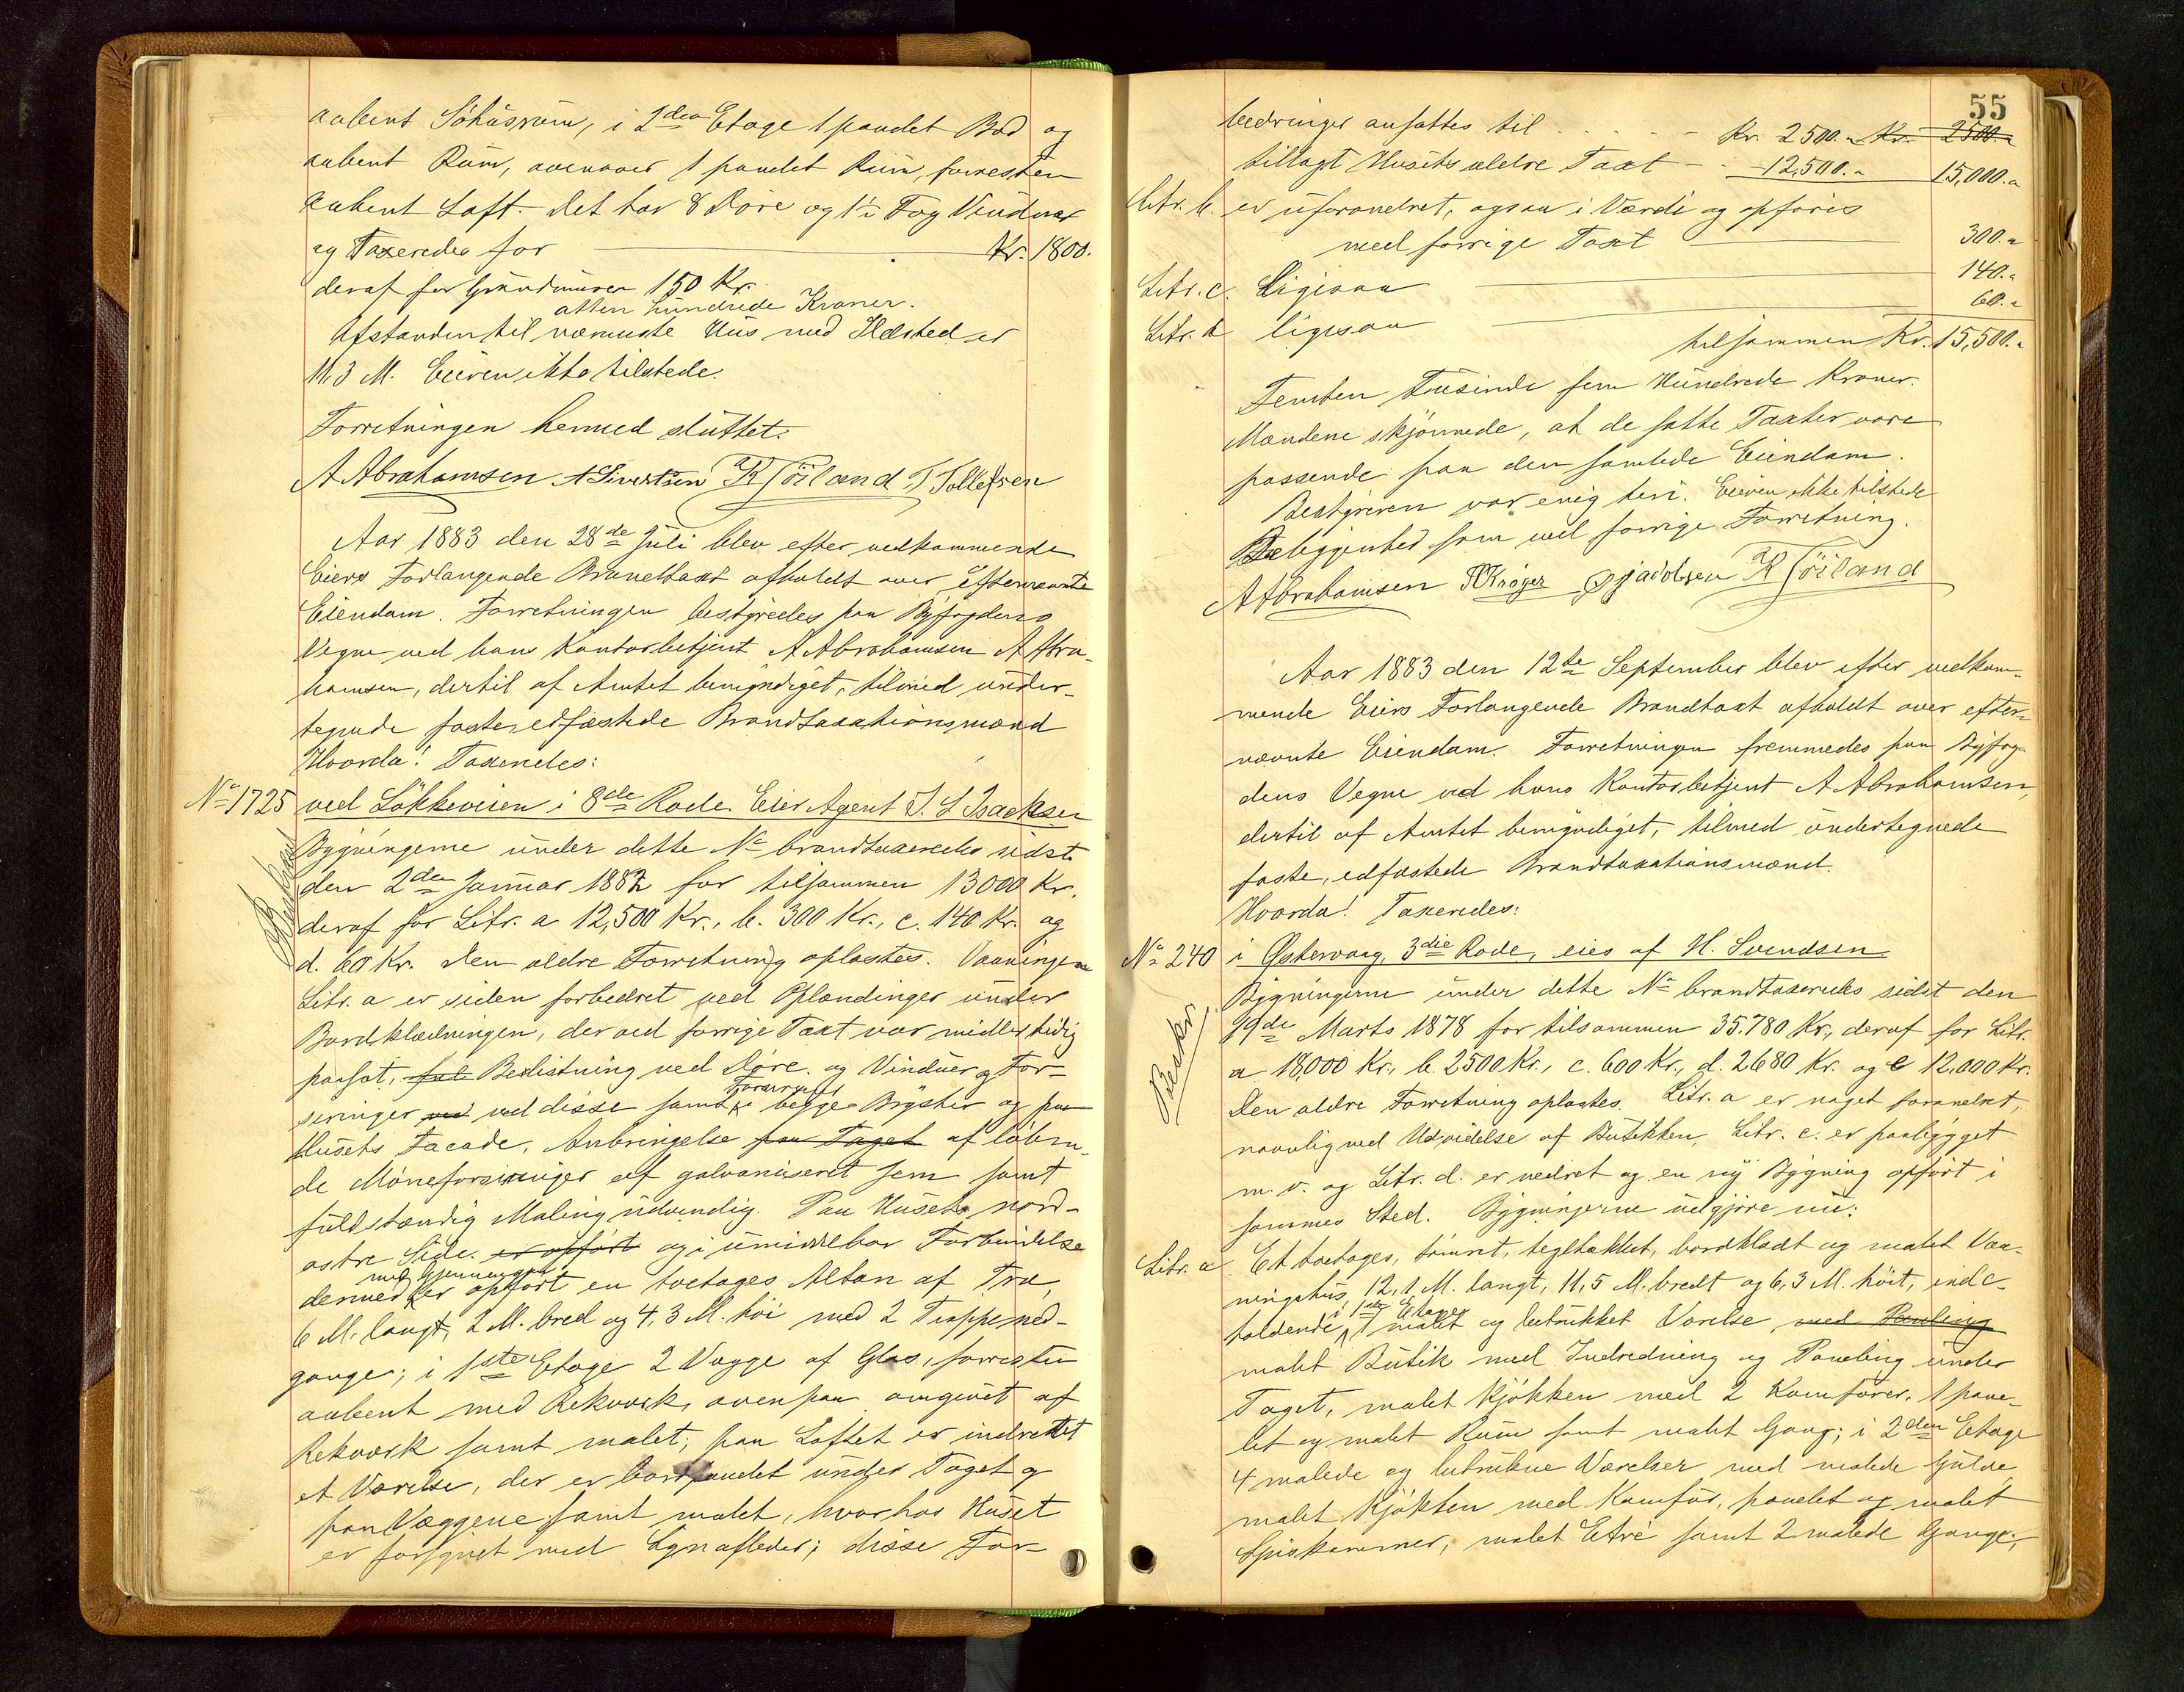 aabent Söhusrum, i 2den Etage 1 panelet Bod og
aabent Rum, ovenover 1 panelet Rum, forresten
aabent Loft. Det har 8 Döre og 1½ Fag Vinduer
og Taxeredes for Kr. 1800.
deraf for Grundmuren 150 Kr.
atten hundrede Kroner.
Afstanden til nærmeste Hus med Ildsted er
11,3 M. Eieren ikke tilstede.
Forretningen hermed sluttet.
A Abrahamsen A Sivertsen R Töiland T Tollefsen
Aar 1883 den 28de Juli blev efter vedkommende
Eiers Forlangende Brandtaxt afholdt over efternævnte
Eiendom. Forretningen bestyredes paa Byfogdens
Vegne ved hans Kontorbetjent A Abrahamsen A Abra-
hamsen, dertil af Amtet bemyndiget, tilmed under-
tegnede faste edfæstede Brandtaxationsmænd
Hvorda! Taxeredes:
No 1725 ved Lökkeveien i 8de Rode. Eier Agent S. L Isachsen
Beskrevet
Bygningerne under dette No brandtaxeredes sidst
den 2den Januar 1882 for tilsammen 13000 Kr.
deraf for Litr. a 12,500 Kr., b. 300 Kr., c. 140 Kr. og
d. 60 Kr. Den ældre Forretning oplæstes. Vaaningen
Litr. a er siden forbedret ved Oplændinger under
Bordklædningen, der ved forrige Taxt var midlertidig
paasat, Beslistning ved Döre og Vinduer og For-
siringer ved disse samt Forsiringer i begge Bryster og paa
Husets Facade, Anbringelse paa Taget af löben-
de Möneforsiringer af galvaniseret Jern samt
fuldstændig Maling udvendig. Paa Husets nord-
östre Side er opfört og i umiddelbar Forbindelse
dermed med Gjennemgang er opfört en toetages Altan af Træ,
6 M. langt, 2 M. bred og 4,3 M. höi med 2 Trappened-
gange; i 1ste Etage 2 Vægge af Glas, forresten
aabent med Rekværk, ovenpaa omgivet af
Rekværk samt malet; paa Loftet er indrettet
et Værelse, der er bordpanelet under Taget og
paa Væggene samt malet, hvorhos Huset
er forsynet med Lynafleder; disse For-
55
bedringer ansattes til Kr. 2500.- Kr. 2500.-
tillagt Husets ældre Taxt - 12,500.- 15,000.-
Litr. b. er uforandret, ogsaa i Værdi og opföres
med forrige Taxt 300.-
Litr. c. Ligesaa 140.-
Litr. d ligesaa 60.-
tilsammen Kr. 15,500.-
Femten Tusinde fem Hundrede Kroner.
Mændene skjönnede, at de satte Taxter vare
passende paa den samlede Eiendom.
Bestyreren var enig heri. Eieren ikke tilstede
Beliggenhed som ved forrige Forretning.
A Abrahamsen Kröger Jacobsen R Töiland
Aar 1883 den 12te September blev efter vedkom-
mende Eiers Forlangende Brandtaxt afholdt over efter-
nævnte Eiendom. Forretningen fremmedes paa Byfog-
dens Vegne ved hans Kontorbetjent A Abrahamsen,
dertil af Amtet bemyndiget, tilmed undertegnede
faste, edfæstede Brandtaxationsmænd.
Hvorda! Taxeredes:
No 240 i Østervaag, 3die Rode, eies af H. Svendsen
Beskr.
Bygningerne under dette No brandtaxeredes sidst den
19de Marts 1878 for tilsammen 35.780 Kr., deraf for Litr.
a 18,000 Kr., b. 2500 Kr., c. 600 Kr., d. 2680 Kr. og e 12.000 Kr.
Den ældre Forretning oplæstes. Litr. a er noget forandret,
navnlig ved Udvidelse af Butikken, Litr. c. er paabygget
m. v. og Litr. d. er nedret og en ny Bygning opfört i
sammes Sted. Bygningerne udgjöre nu:
Litr. a Et toetages, tömret, tegltækket, bordklædt og malet Vaa-
ningshus, 12,1 M. langt, 11,5 M. bredt og 6,3 M. höit, inde-
holdende i 1ste Etage 1 malet og betrukket Værelse, med Paneling
malet Butik med Indredning og Paneling under
Taget, malet Kjökken med 2 Komfurer, 1 pane-
let og malet Rum samt malet Gang; i 2den Etage
4 malede og betrukne Værelser med malede Gulve,
malet Kjökken med Komfur, panelet og malet
Spiskammer, malet Etré samt 2 malede Gange,